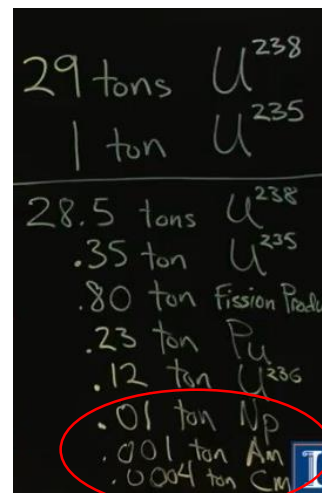 29 tons U²³⁸
1 ton U²³⁵
28.5 tons U²³⁸
.35 ton U²³⁵
.80 ton Fission Produ
.23 ton Pu
.12 ton U²³⁶
.01 ton Np
.001 ton Am
.0004 ton Cm